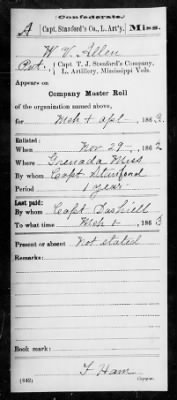 Confederate.
A Capt. Stanford's Co., L. Art'y. Miss.
W. V. Allen
Pvt., Capt. T. J. Stanford's Company,
L. Artillery, Mississippi Vols.
Appears on
Company Muster Roll
of the organization named above,
for Mch & Apl, 1863.
Enlisted:
When Nov 29, 1862
Where Grenada Miss
By whom Capt Stanford
Period 1 year
Last paid:
By whom Capt Dashiell
To what time Mch 1, 1863
Present or absent Not stated
Remarks:
Book mark:
F Ham
(642) Copyist.